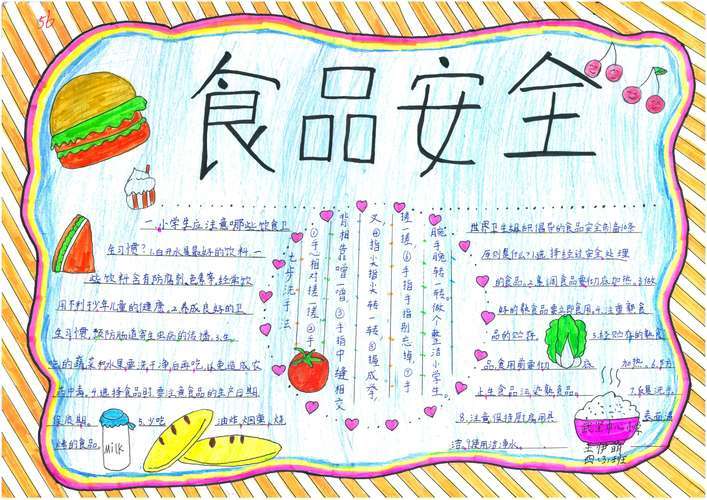 56
食品安全
一.小学生应注意哪些饮食卫
生习惯?1.白开水是最好的饮料 一
些饮料含有防腐剂.色素等,经常饮
用不利于少年儿童的健康.2.养成良好的卫
生习惯,预防肠道寄生虫病的传播.3.生
吃的蔬菜和水果要洗干净再吃,以免造成农
药中毒.4.选择食品时要注意食品的生产日期.
保质期. 5.少吃 油炸.烟熏.烧
烤的食品.
Milk
七步洗手法
①手心相对搓一搓②手
背相靠蹭一蹭③手指中缝相交
叉④指尖指尖转一转⑤握成拳
搓一搓⑥手指手指别忘掉⑦手
腕手腕转一转。做个整洁小学生。
世界卫生组织倡导的食品安全制备10条
原则是什么?1.选择经过安全处理
的食品.2.烹调食品要彻底加热.3.做
好的熟食品要立即食用.4.注意熟食
品的贮存 5.经贮存的熟食
品,食用前要彻底 加热.6.
止生食品污染熟食品. 7.
8.注意保持厨房用具 表面
洁.使用洁净水.
中心小学
王伊萌
四(3)班